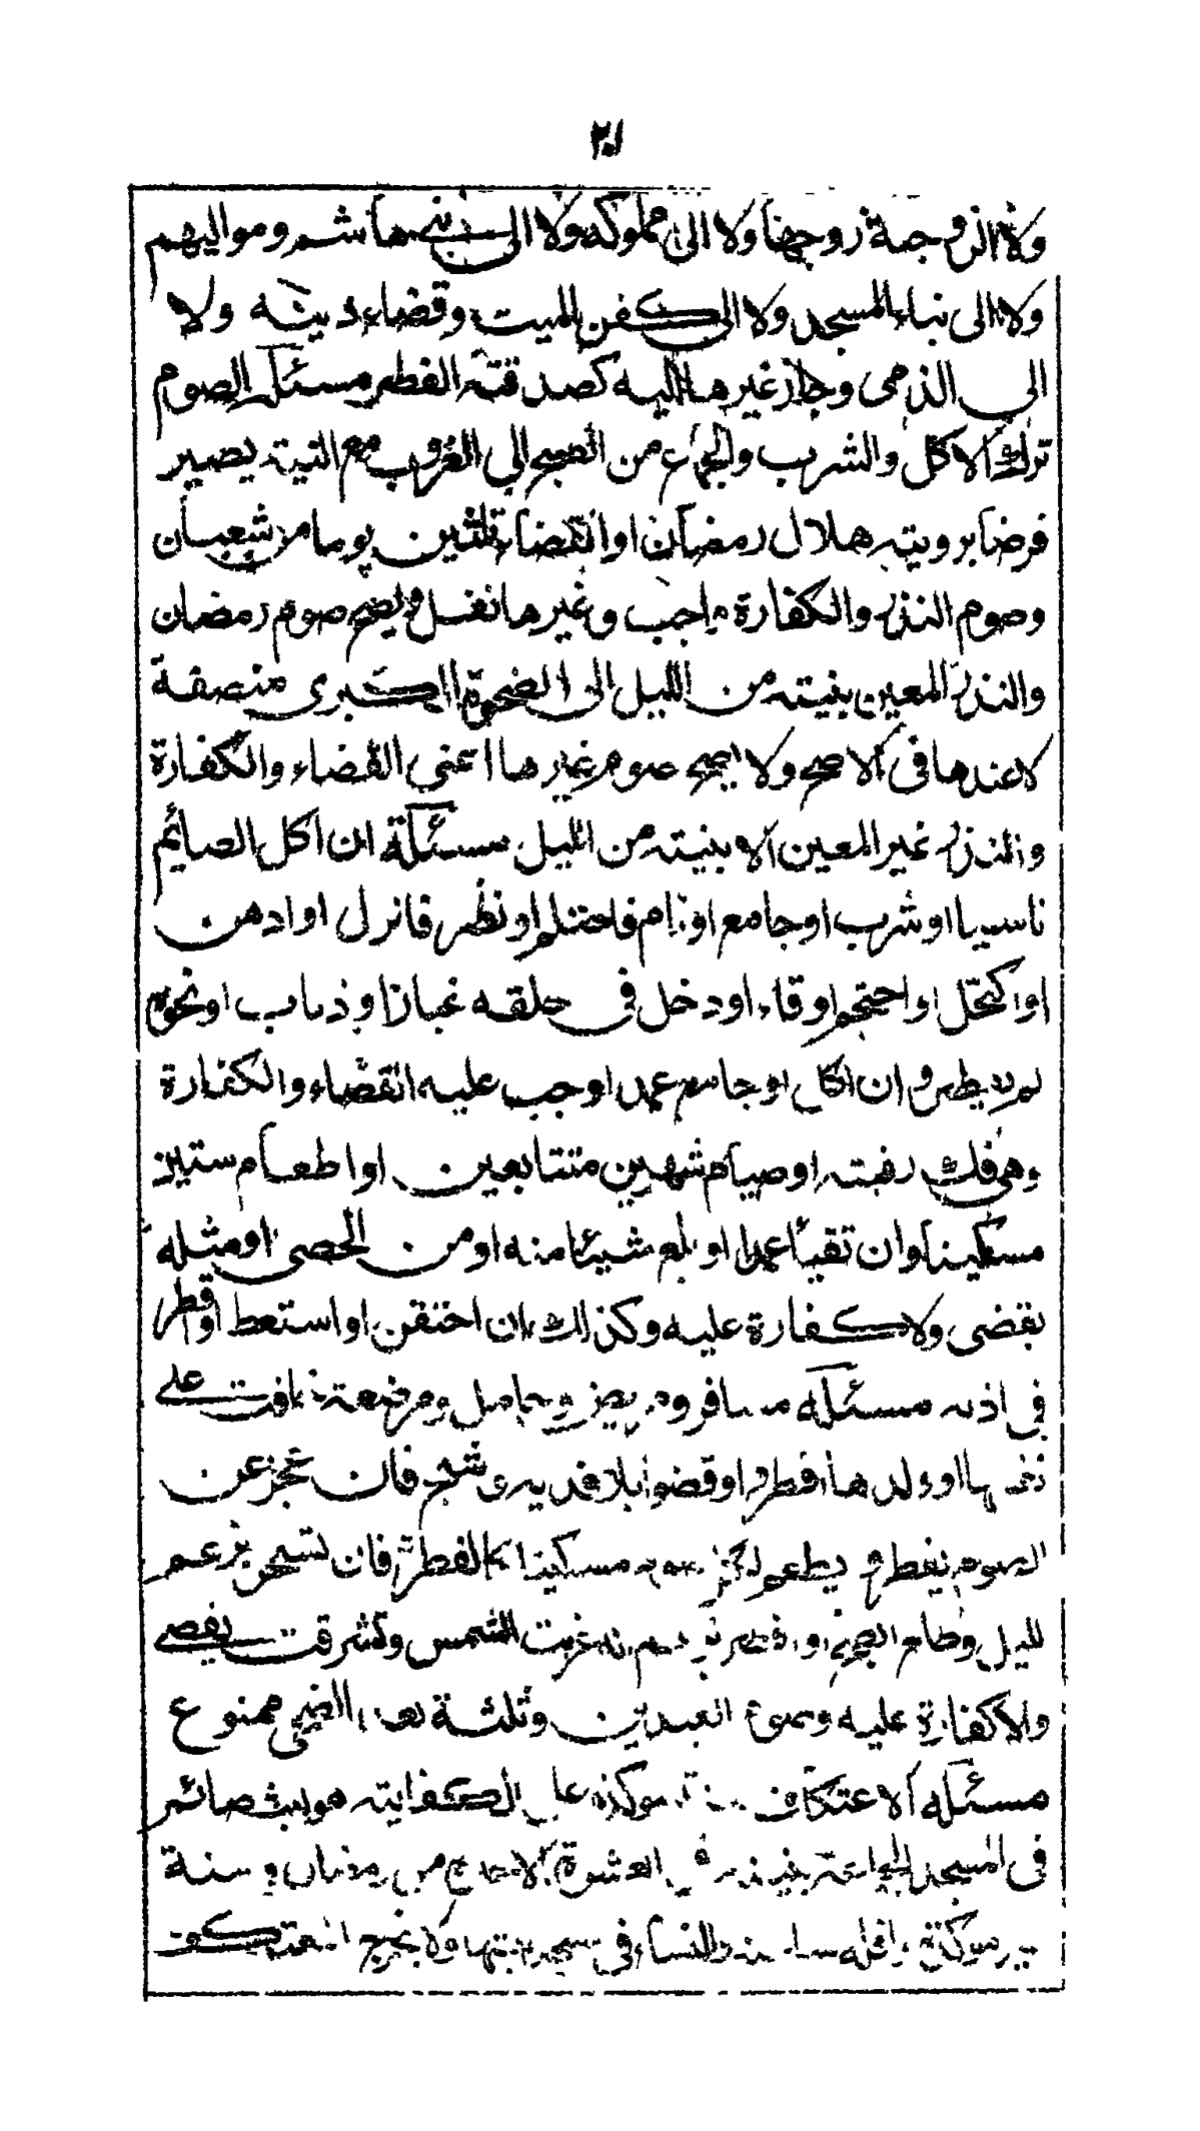 ٢٠١
ولا الزوجة زوجها ولا الى مملوكه ولا الى بنى هاشم ومواليهم
ولا الى بناء المسجد ولا الى كفن الميت وقضاء دينه ولا
الى الذمى وجاز غيرها اليه كصدقته الفطر مسئله الصوم
ترك الاكل والشرب والجماع من الصبح الى الغروب مع النية يصير
فرضا برويته هلال رمضان او انقضاء ثلثين يوما من شعبان
وصوم النذر والكفارة واجب وغيرها نفل ويصح صوم رمضان
والنذر المعين بنيته من الليل الى الضحوة الكبرى منصفة
لا عندها فى الاصح ولا يصح صوم غيرها اعنى القضاء والكفارة
والنذر غير المعين الا بنيته من الليل مسئلة ان اكل الصائم
ناسيا او شرب او جامع او نام فاحتلم او نظر فانزل او ادهن
او اكتحل او احتجم او قاء او دخل فى حلقه غبار او ذباب او نحوه
لم يفطر وان اكل او جامع عمدا وجب عليه القضاء والكفارة
وهى فك رقبته او صيام شهرين متتابعين او اطعام ستين
مسكينا وان تقيأ عمدا او بلع شيئا منه او من الحصى او مثله
يقضى ولا كفارة عليه وكذالك ان احتقن او استعط او قطر
فى اذنه مسئله مسافر ومريض وحامل ومرضعة خافت على
نفسها او ولدها افطروا وقضوا بلا فديه وشيخ فان عجز عن
الصوم يفطر ويطعم لكل صوم مسكينا كالفطرة فان تسحر بزعم
الليل وطلع الصبح او افطر بزعم انه غربت الشمس وتشرقت يقضى
ولا كفارة عليه وصوم العيدين وثلثة بعد الضحى ممنوع
مسئله الاعتكاف سنة موكده على الكفايته هو لبث صائم
فى المسجد الجماعة بنيته فى العشرة الاخير من رمضان و سنة
غير موكدة واقله ساعة والنساء فى مسجد بيتها ولا يخرج المعتكف